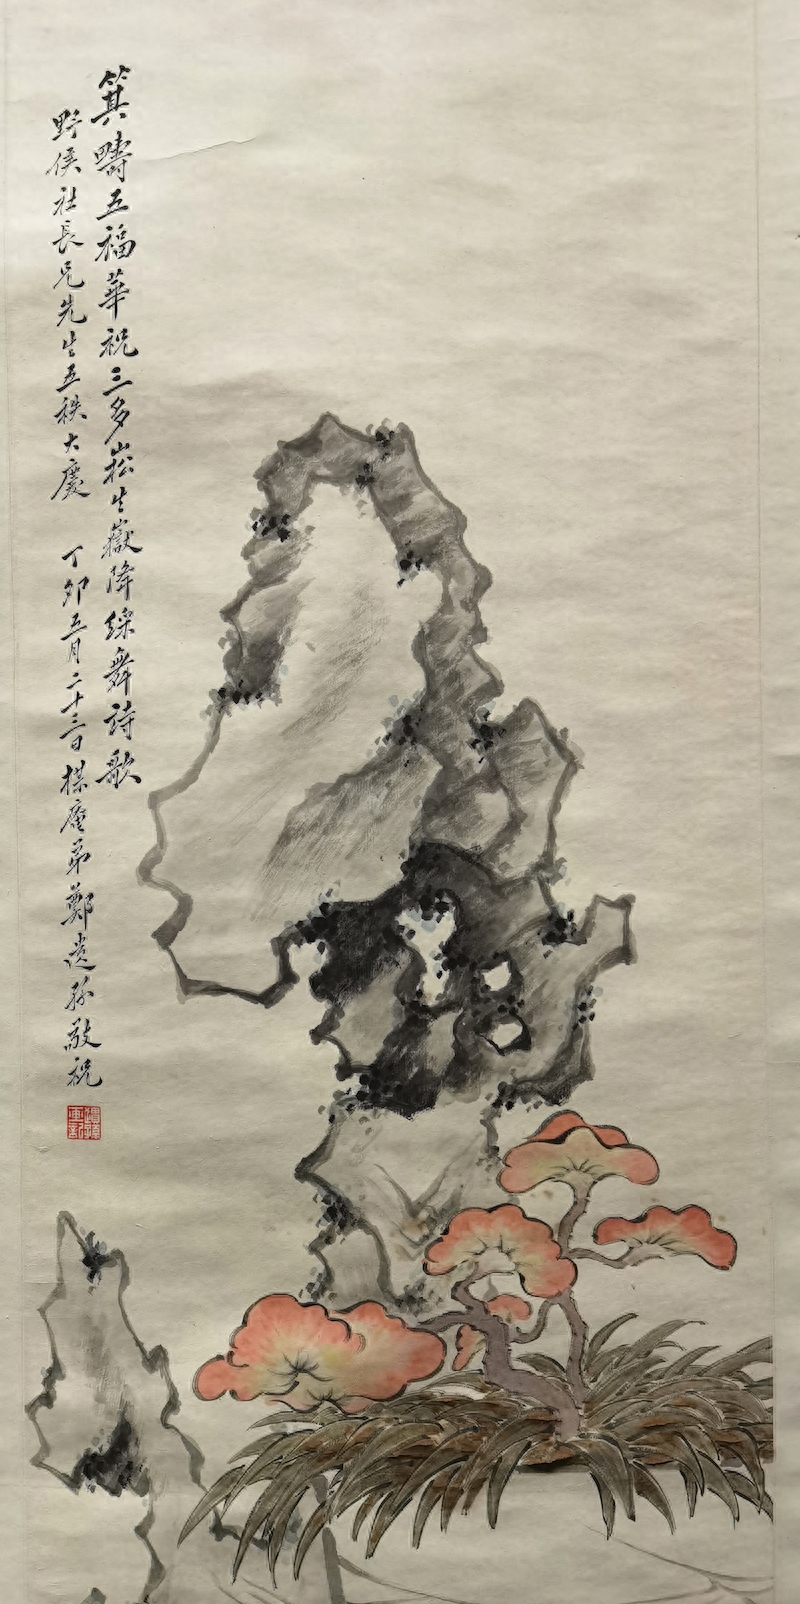 箕疇五福華祝三多崧生嶽降綵舞詩歌
野侯社長兄先生五秩大慶 丁卯五月二十三日棋庵弟鄭遺孫敬祝